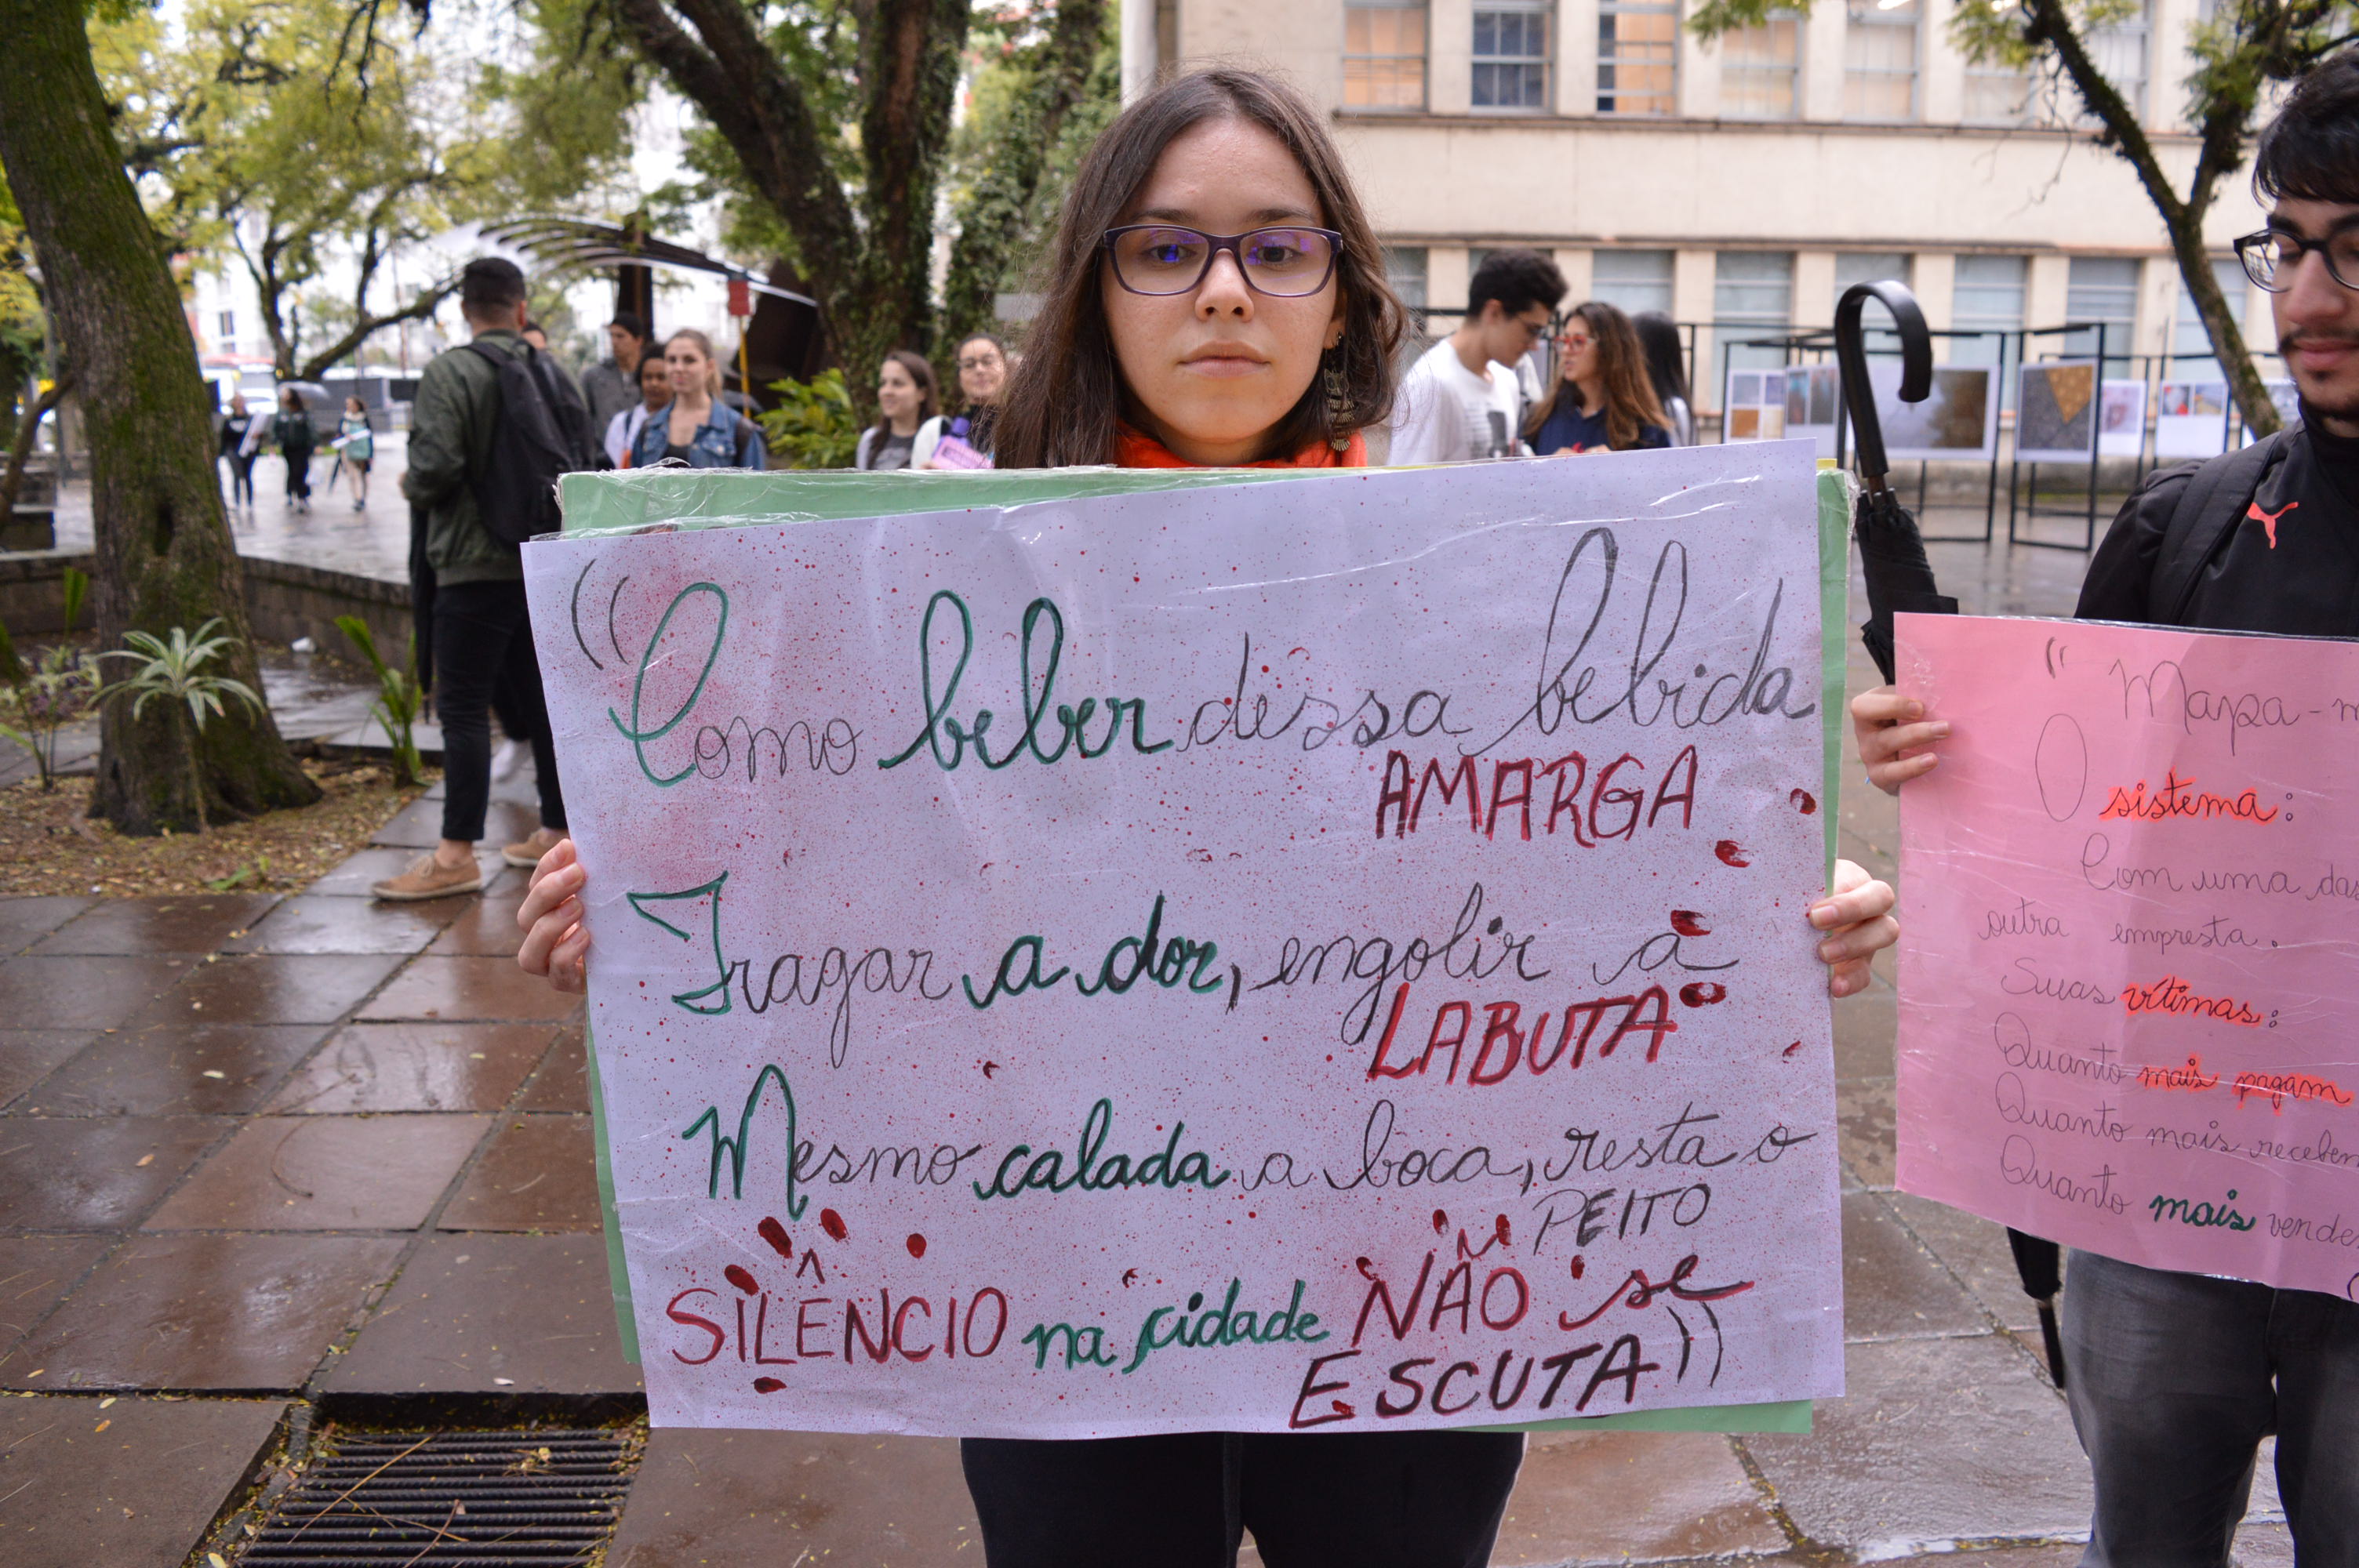 "Como beber dessa bebida
AMARGA
Tragar a dor, engolir a
LABUTA
Mesmo calada a boca, resta o
PEITO
SILÊNCIO na cidade NÃO se
ESCUTA"
" Mapa-m
O
sistema:
Com uma das
outra empresta.
Suas vítimas:
Quanto mais pagam
Quanto mais recebem
Quanto mais vende